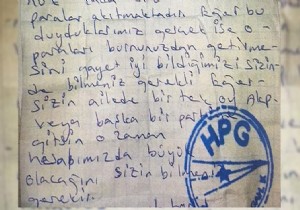 paralar akıtmaktadır. Eğer bu
duyduklarımız gerçek ise o
paraları burnunuzdan getirme-
sini gayet iyi bildiğimizi sizin
de bilmeniz gerekli Eğer
sizin ailede bir tek oy Akp-
veya başka bir par
gitsin o zaman
hesabımızda büyü
olacağını sizin bilme
gerekir.
HPG